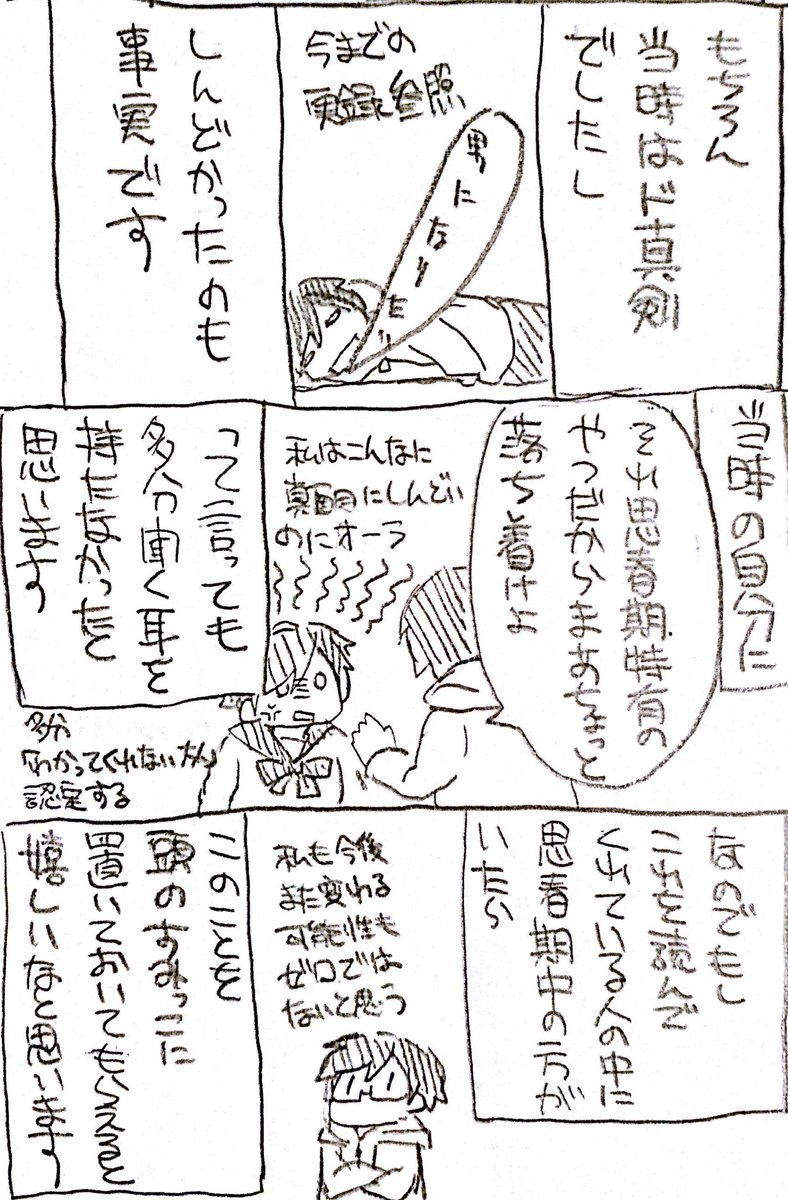 もちろん
当時はド真剣
でしたし
今までの
実録参照
男になりたい
しんどかったのも
事実です
当時の自分に
それ思春期特有の
やつだからまあちょっと
落ち着けよ
私はこんなに
真面目にしんどい
のにオーラ
って言っても
多分聞く耳を
持たなかったと
思います
多分
「わかってくれない大人」
認定する
なのでもし
これを読んで
くれている人の中に
思春期中の方が
いたら
私も今後
また変わる
可能性も
ゼロでは
ないと思う
このことを
頭のすみっこに
置いておいてもらえると
嬉しいなと思います